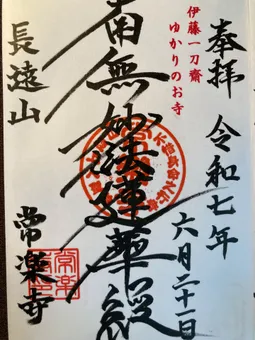 奉拝
令和七年
六月二十一日
伊藤一刀齋
ゆかりのお寺
南無妙法蓮華経
長遠山
常楽寺